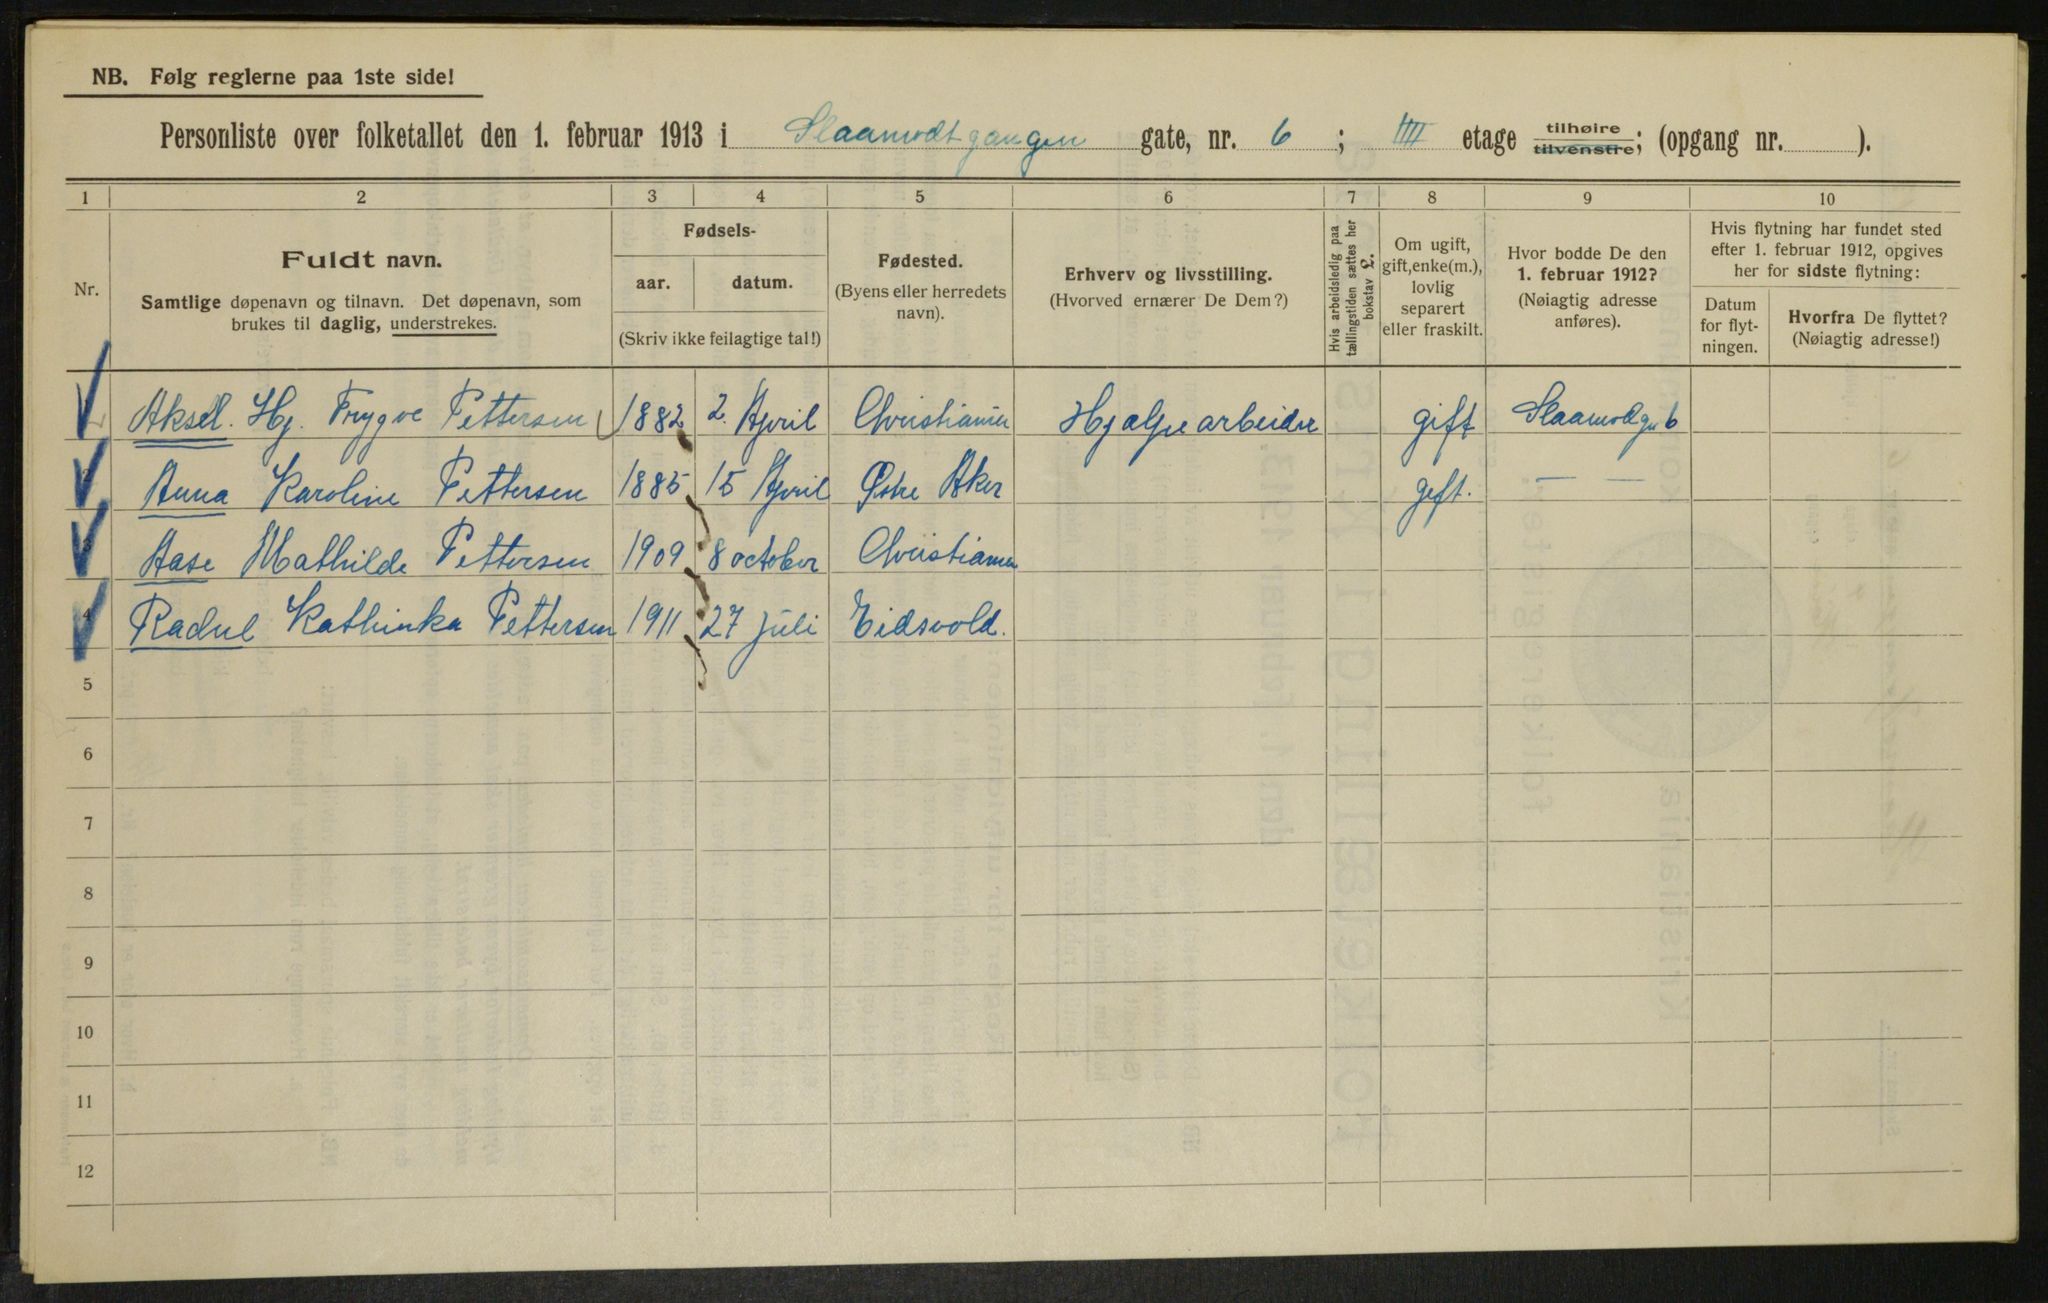 NB. Følg reglerne paa 1ste side!
Personliste over folketallet den 1. februar 1913 i Slaamodtgangen gate, nr. 6 ; IIII etage tilhøire tilvenstre; (opgang nr. ).
1 2 3 4 5 6 7 8 9 10
Nr.
Fuldt navn.
Samtlige døpenavn og tilnavn. Det døpenavn, som
brukes til daglig, understrekes.
Fødsels-
aar. datum.
(Skriv ikke feilagtige tal!)
Fødested.
(Byens eller herredets
navn).
Erhverv og livsstilling.
(Hvorved ernærer De Dem?)
Hvis arbeidsledig paa
tællingstiden sættes her
bokstav L.
Om ugift,
gift, enke(m.),
lovlig
separert
eller fraskilt.
Hvor bodde De den
1. februar 1912?
(Nøiagtig adresse
anføres).
Hvis flytning har fundet sted
efter 1. februar 1912, opgives
her for sidste flytning:
Datum
for flyt-
ningen.
Hvorfra De flyttet?
(Nøiagtig adresse!)
Aksel. Hj. Trygve Pettersen 1882 2. April Christiania Hjælpearbeider gift Slaamodg. 6
2 Anna Karoline Pettersen 1885 15 April Østre Aker gift. — —
3 Aase Mathilde Pettersen 1909 8 october Christiania
4 Kathinka Pettersen 1911 27 juli Eidsvold.
5
6
7
8
9
10
11
12